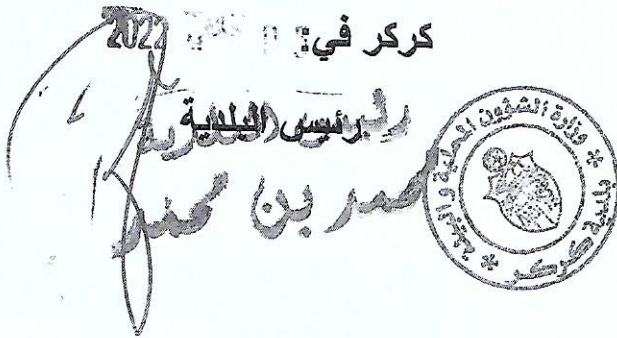 كركر في: 2022
رئيس البلدية
محمد بن محمد
* وزارة الشؤون المحلية والبيئة * بلدية كركر